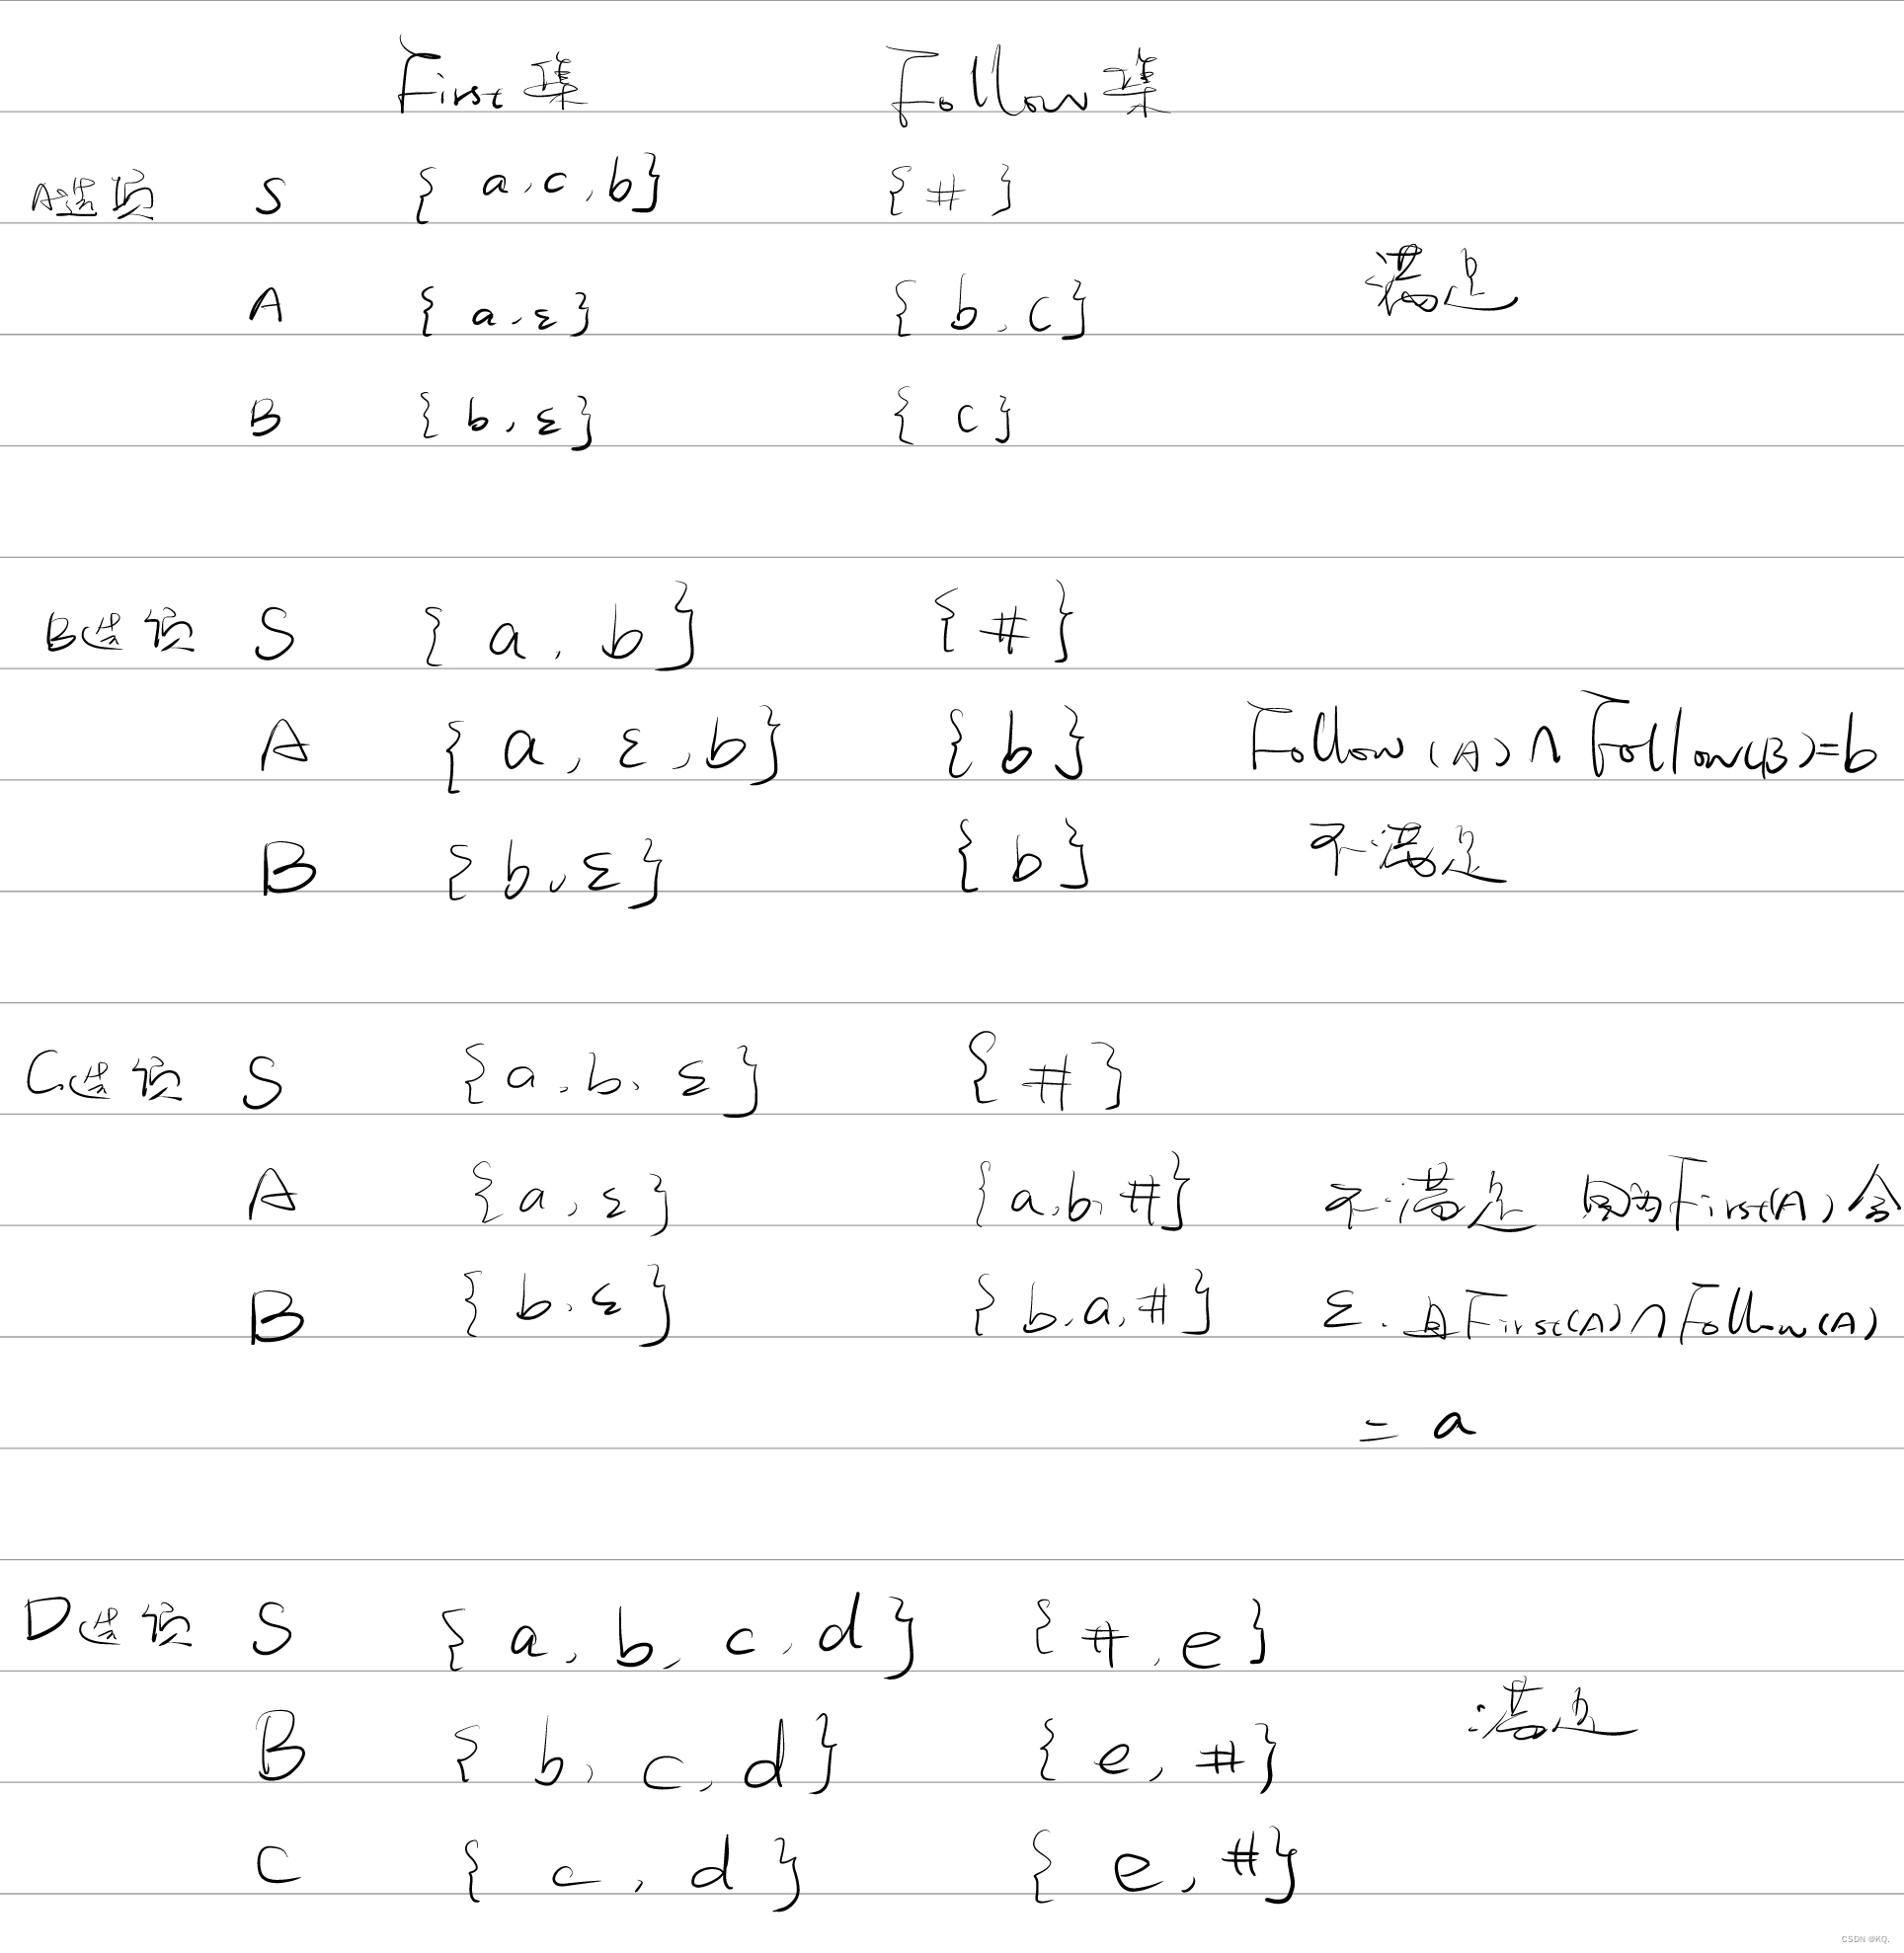 First集 Follow集
A选项 S { a,c,b} {#}
A { a,ε} { b,c} 满足
B { b,ε} { c}
B选项 S { a,b} {#}
A { a,ε,b} { b} Follow(A)∩Follow(B)=b
B { b,ε} { b} 不满足
C选项 S {a,b,ε} {#}
A {a,ε} {a,b,#} 不满足 因为First(A)含
B {b,ε} {b,a,#} ε.且First(A)∩Follow(A)
= a
D选项 S { a,b,c,d} {#,e}
B { b,c,d} { e,#} 满足
C { c,d} { e,#}
CSDN @KQ.